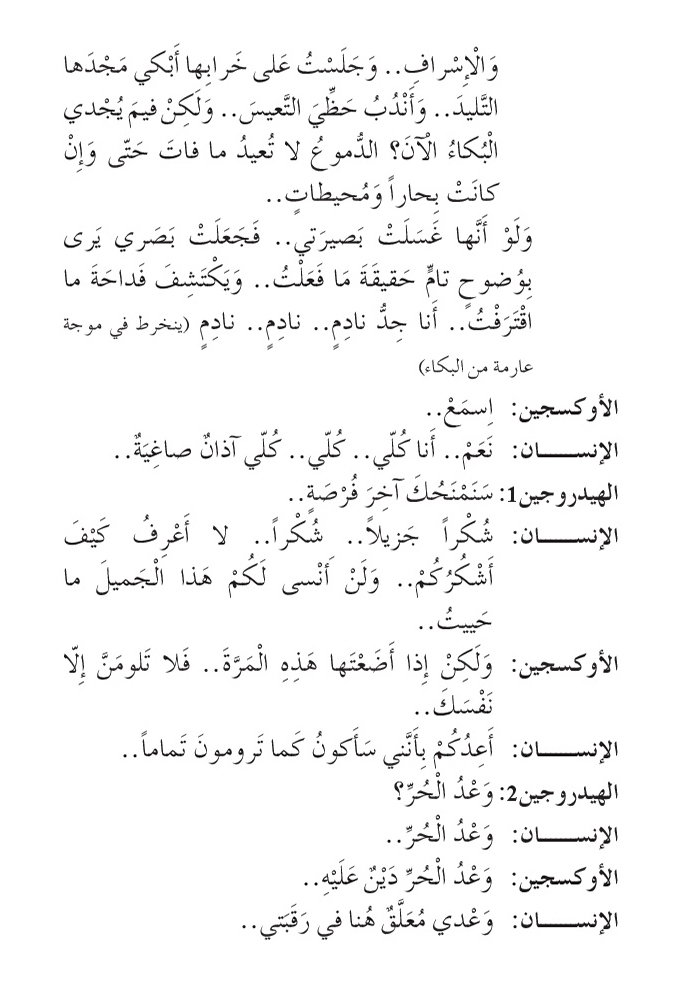 وَالْإِسْرافِ.. وَجَلَسْتُ عَلى خَرابِها أَبْكي مَجْدَها
التَّليدَ.. وَأَنْدُبُ حَظِّيَ التَّعيسَ.. وَلَكِنْ فيمَ يُجْدي
الْبُكاءُ الْآنَ؟ الدُّموعُ لا تُعيدُ ما فاتَ حَتّى وَإِنْ
كانَتْ بِحاراً وَمُحيطاتٍ..
وَلَوْ أَنَّها غَسَلَتْ بَصيرَتي.. فَجَعَلَتْ بَصَري يَرى
بِوُضوحٍ تامٍّ حَقيقَةَ مَا فَعَلْتُ.. وَيَكْتَشِفَ فَداحَةَ ما
اقْتَرَفْتُ.. أَنا جِدُّ نادِمٍ.. نادِمٍ.. نادِمٍ (ينخرط في موجة
عارمة من البكاء)
الأوكسجين: اِسمَعْ..
الإنســـــان: نَعَمْ.. أَنا كُلّي.. كُلّي.. كُلّي آذانٌ صاغِيَةٌ..
الهيدروجين1: سَنَمْنَحُكَ آخِرَ فُرْصَةٍ..
الإنســـــان: شُكْراً جَزيلاً.. شُكْراً.. لا أَعْرِفُ كَيْفَ
أَشْكُرُكُمْ.. وَلَنْ أَنْسى لَكُمْ هَذا الْجَميلَ ما
حَييتُ..
الأوكسجين: وَلَكِنْ إِذا أَضَعْتَها هَذِهِ الْمَرَّةَ.. فَلا تَلومَنَّ إِلّا
نَفْسَكَ..
الإنســـــان: أَعِدُكُمْ بِأَنَّني سَأَكونُ كَما تَرومونَ تَماماً..
الهيدروجين2: وَعْدُ الْحُرِّ؟
الإنســـــان: وَعْدُ الْحُرِّ..
الأوكسجين: وَعْدُ الْحُرِّ دَيْنٌ عَلَيْهِ..
الإنســـــان: وَعْدي مُعَلَّقٌ هُنا في رَقَبَتي..